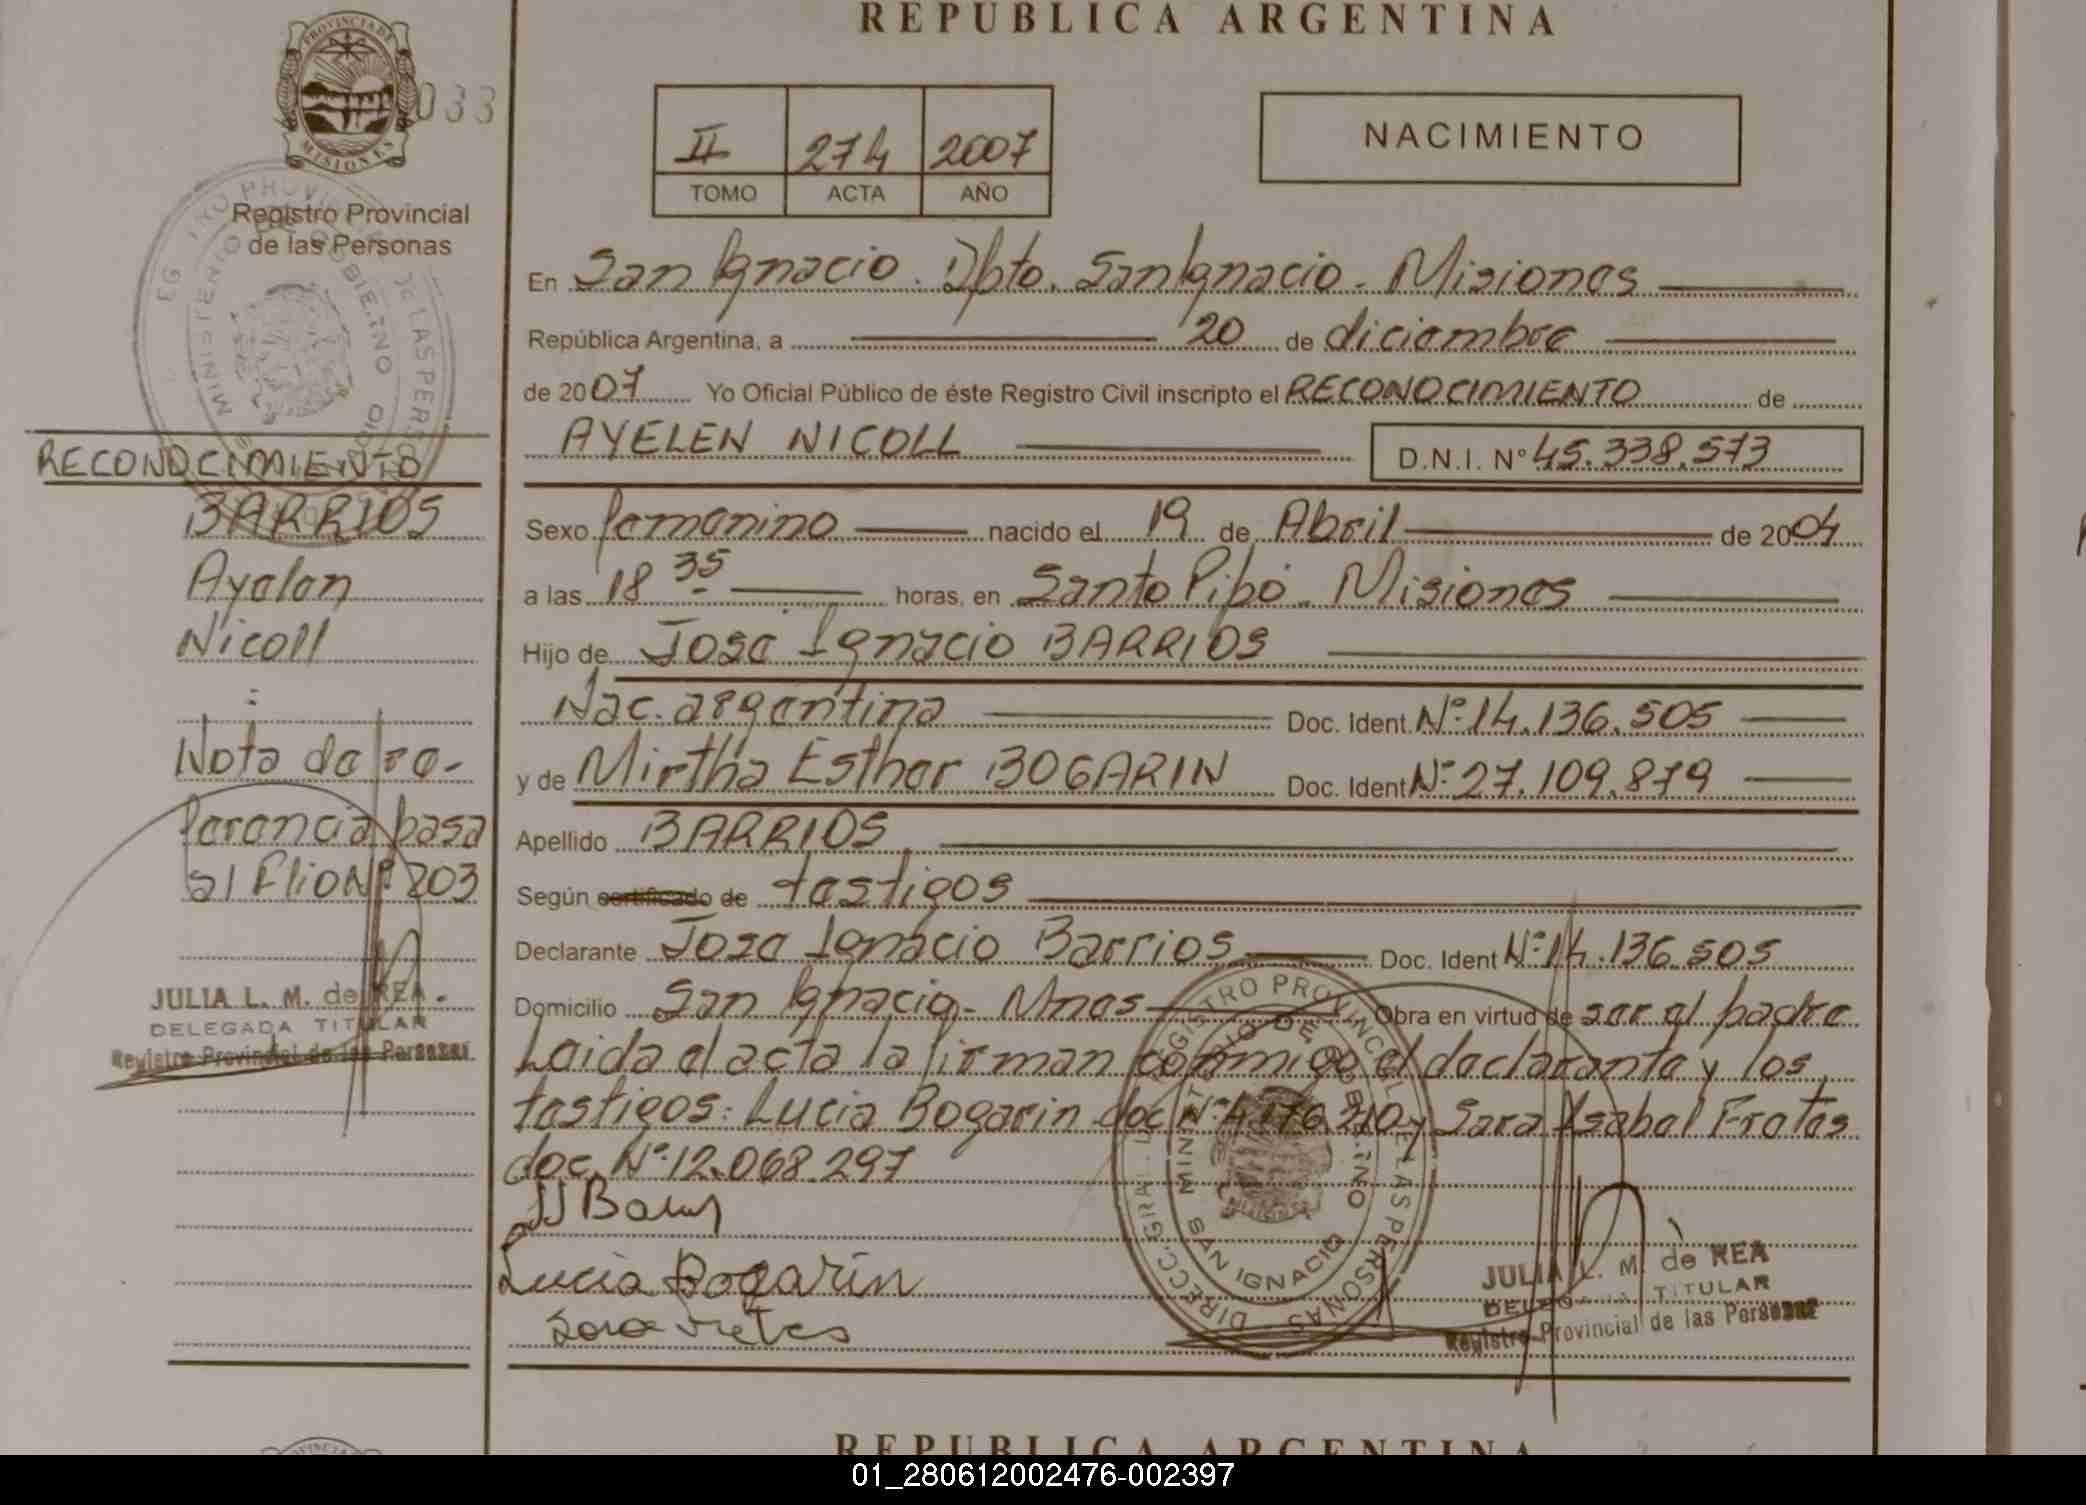 REPUBLICA ARGENTINA
PROVINCIA DE
MISIONES
033
II 274 2007
TOMO ACTA AÑO
NACIMIENTO
Registro Provincial
de las Personas
En San Ignacio. Dpto. San Ignacio - Misiones
República Argentina, a 20 de diciembre
de 2007 Yo Oficial Público de éste Registro Civil inscripto el RECONOCIMIENTO de
AYELEN NICOLL D.N.I. Nº 45.338.573
Sexo femenino nacido el 19 de Abril de 2004
a las 18 35 horas, en Santo Pipó - Misiones
Hijo de José Ignacio BARRIOS
Nac. argentina Doc. Ident. Nº 14.136.505
y de Mirtha Esther BOGARIN Doc. Ident Nº 27.109.879
Apellido BARRIOS
Según certificado de testigos
Declarante José Ignacio Barrios Doc. Ident Nº 14.136.505
Domicilio San Ignacio - Mnes Obra en virtud de ser el padre
Leida el acta la firman conmigo el declarante y los
testigos: Lucia Bogarin doc Nº 4.170.210 y Sara Isabel Fretes
doc. Nº 12.068.297
Lucia Bogarin
Sara Fretes
DIRECC. GRAL. REGISTRO PROVINCIAL DE LAS PERSONAS
MINISTERIO DE GOBIERNO
SAN IGNACIO
JULIA L. M. de REA
DELEGADA TITULAR
Registro Provincial de las Personas
RECONOCIMIENTO
BARRIOS
Ayelen
Nicoll
Nota de re-
ferencia pasa
al Flio Nº 203
JULIA L. M. de REA
DELEGADA TITULAR
Registro Provincial de las Personas
REPUBLICA ARGENTINA
01_280612002476-002397